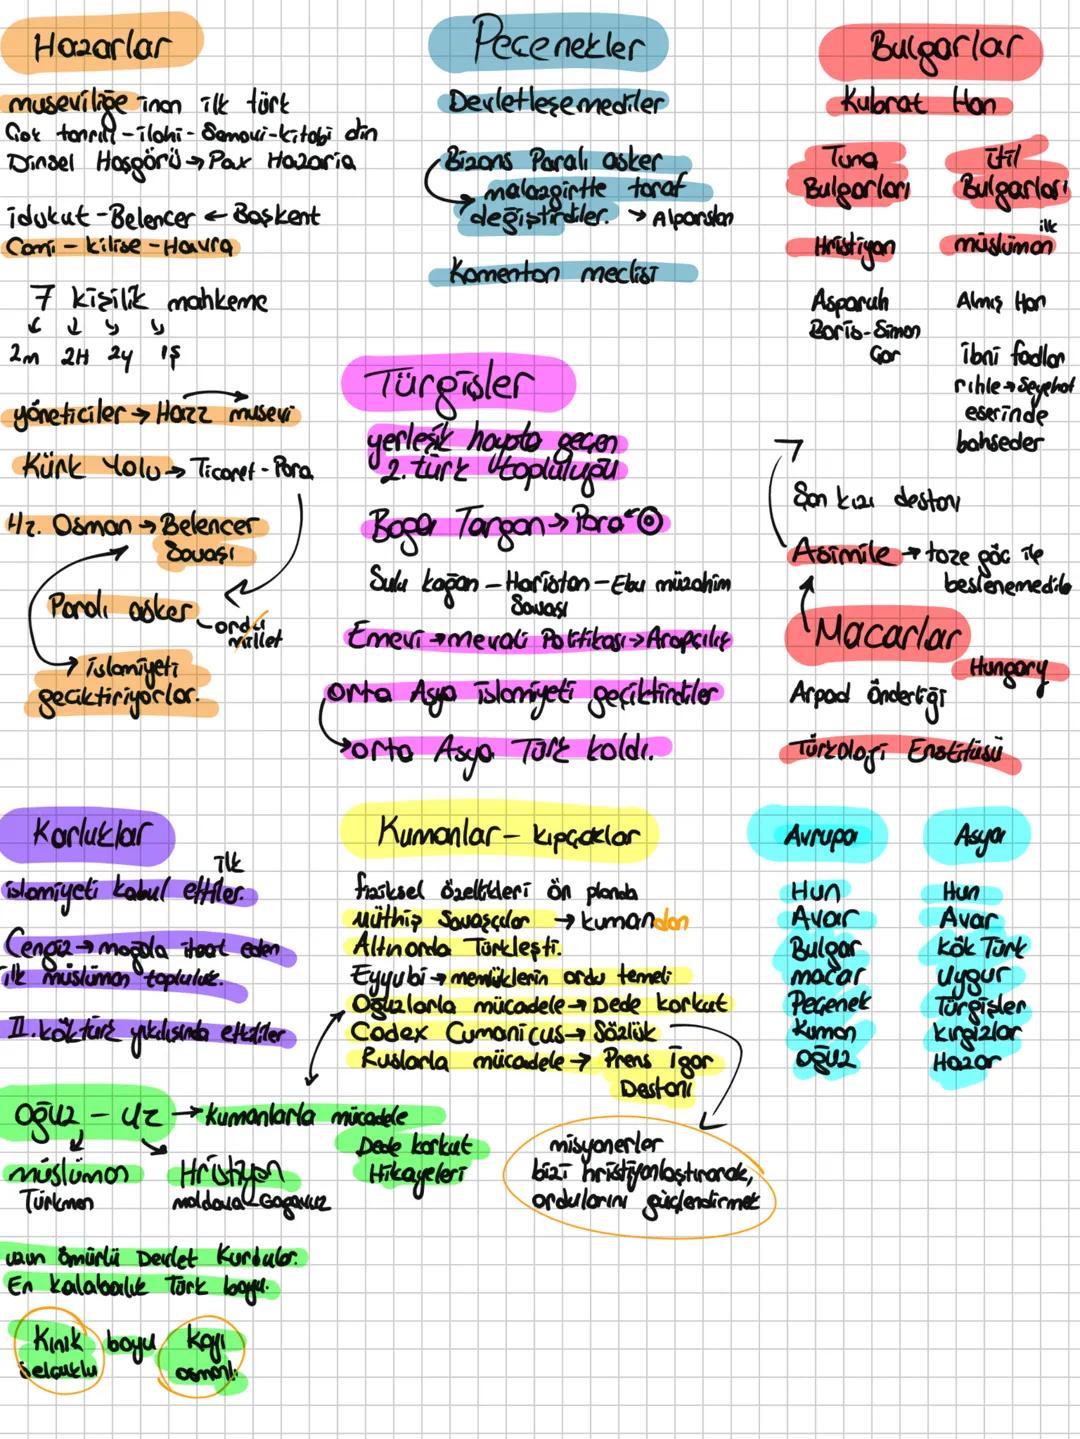 Hazarlar
museviliğe inan ilk türk
Çok tanrılı - ilahi - Semavi - kitabi din
Dinsel Hoşgörü → Pax Hazaria
idukut - Belencer ← Başkent
Cami - kilise - Havra
7 kişilik mahkeme
2m 2H 2y 1ş
yöneticiler → Hazz musevi
Kürk Yolu → Ticaret - Para
Hz. Osman → Belencer
Savaşı
Paralı asker
ordu
millet
islamiyeti
geciktiriyorlar.
Peçenekler
Devletleşemediler
Bizans Paralı asker
malazgirtte taraf
değiştirdiler. → Alparslan
Komenton meclisi
Bulgarlar
Kubrat Han
Tuna
Bulgarları
Hristiyan
Asparuh
Boris - Simon
Çar
itil
Bulgarları
ilk
müslüman
Almış Han
ibni fadlan
rihle → seyehat
eserinde
bahseder
Türgişler
yerleşik hayata geçen
2. türk topluluğu
Baga Targan → Para
Sulu kağan - Haristan - Ebu müzahim
Savaşı
Emevi → mevali Politikası → Arapçılık
orta Asya islamiyeti geçiktirdiler
orta Asya Türk kaldı.
Şan kızı destanı
Asimile → taze göç ile
beslenemedile
Macarlar
Hungary
Arpad önderliği
Türkoloji Enstitüsü
Karluklar
ilk
islamiyeti kabul ettiler.
Cengiz → moğola itaat eden
ilk müslüman topluluk.
II. köktürk yıkılışında etkililer
Kumanlar - kıpçaklar
fiziksel özellikleri ön planda
müthiş Savaşçılar → kumandan
Altınorda Türkleşti.
Eyyubi → memlüklerin ordu temeli
Oğuzlarla mücadele → Dede korkut
Codex Cumanicus → Sözlük
Ruslarla mücadele → Prens igor
Destanı
misyonerler
bizi hristiyanlaştırarak,
ordularını güçlendirmek
Avrupa
Hun
Avar
Bulgar
macar
Peçenek
Kuman
oğuz
Asya
Hun
Avar
Kök Türk
Uygur
Türgişler
kırgızlar
Hazar
Oğuz - Uz → kumanlarla mücadele
Dede korkut
Hikayeleri
müslüman
Türkmen
Hristiyan
moldova - Gagavuz
uzun ömürlü Devlet Kurdular.
En kalabalık Türk boyu.
Kınık boyu kayı
selçuklu osmanlı